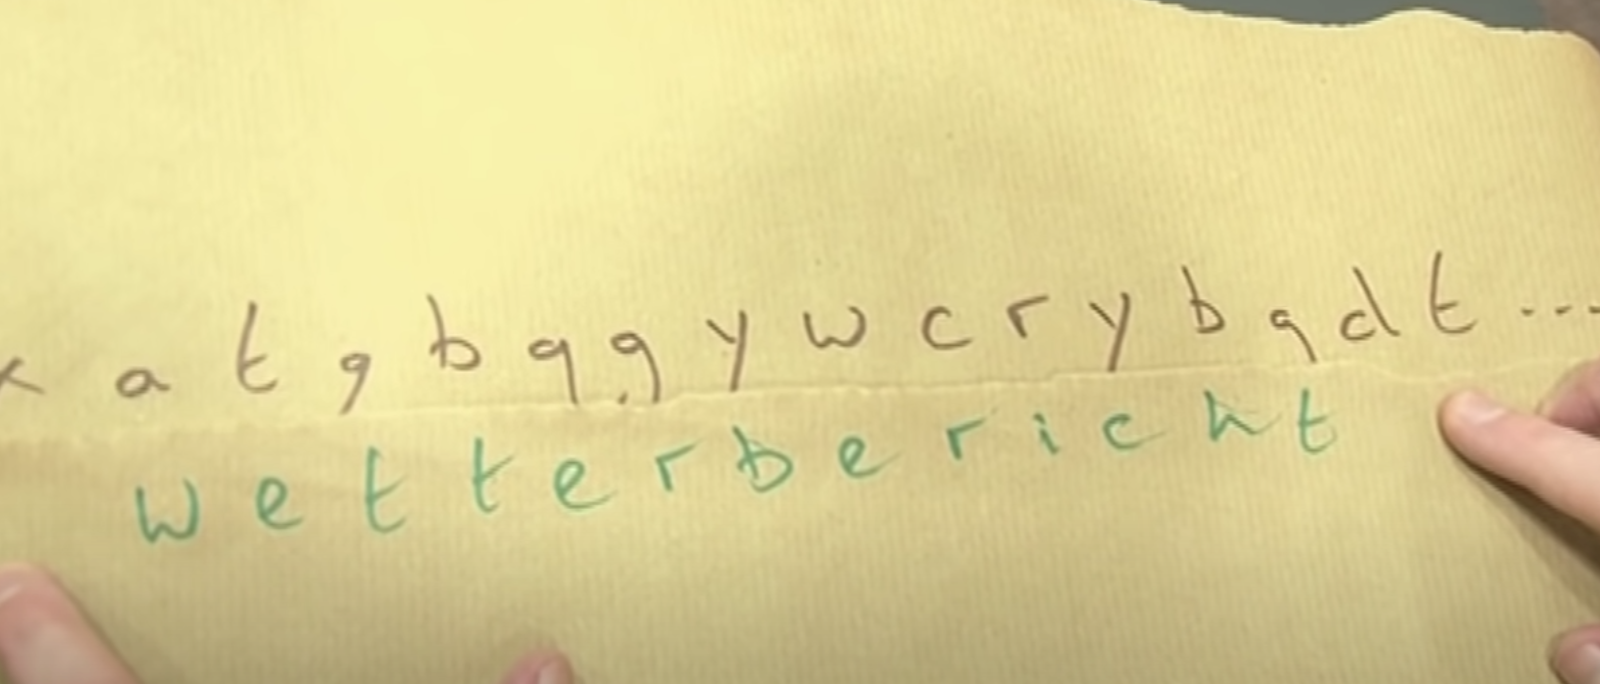 x a t g b q g y w c r y b q d t ...
wetterbericht